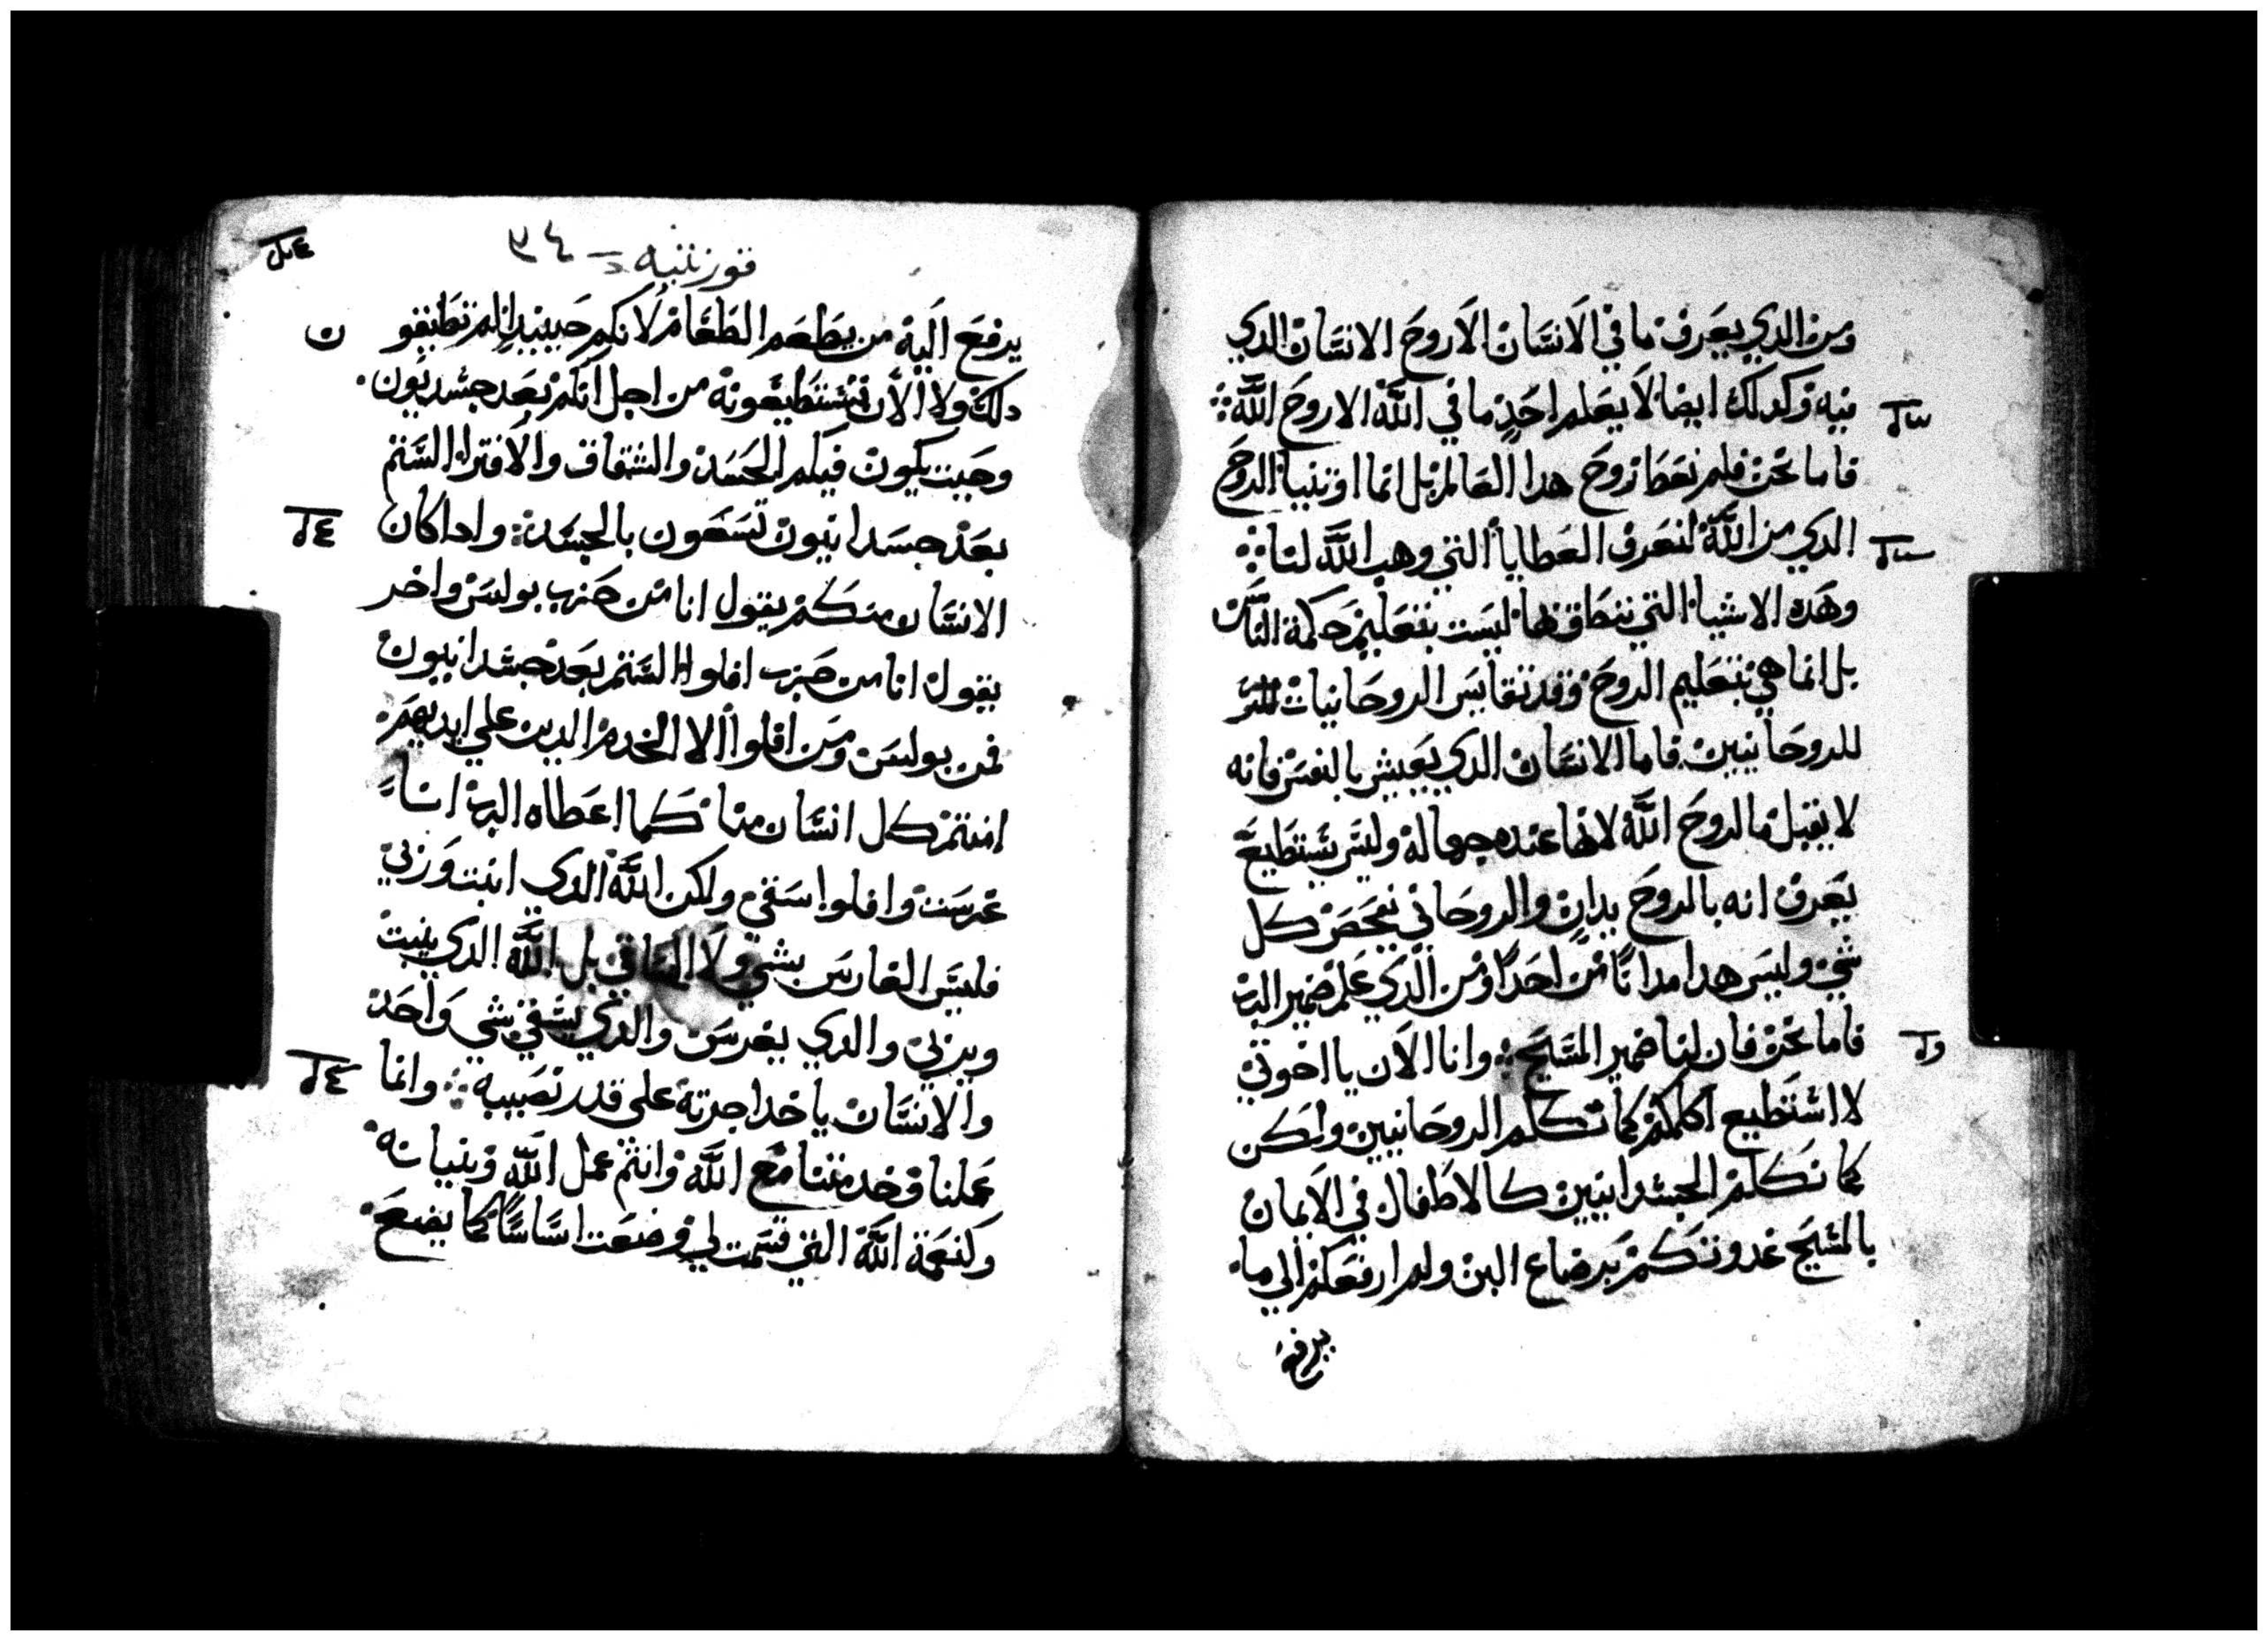 ومن الدي يعرف ما في الانسان الا روح الانسان الدي
فيه وكدلك ايضا لا يعلم احد ما في الله الا روح الله
فاما نحن فلم نعطا روح هدا العالم بل انما اوتينا الروح
الدي من الله لنعرف العطايا التي وهب الله لنا
وهده الاشيا التي ننطق بها ليست بتعليم حكمة الناس
بل انما هي بتعليم الروح وقد تقايس الروحانيات
للروحانيين فاما الانسان الدي يعيش بالنفس فانه
لا يقبل ما لروح الله لانها عنده جهالة وليس يستطيع
يعرف انه بالروح يدان والروحاني يفحص كل
شي وليس هدا مدانا من احدا ومن الدي علم ضمير الرب
فاما نحن فان لنا ضمير المسيح وانا الان يا اخوتي
لا استطيع اكلمكم كما نكلم الروحانيين ولكن
كما نكلم الجسدانيين كالاطفال في الايمان
بالمسيح غدوتكم برضاع البن ولم ارفعكم الي ما
يرفع
قورنتيه ٣٤
يرفع اليه من يطعم الطعام لانكم حينيد لم تطيقو
دلك ولا الان تستطيعونه من اجل انكم بعد جسديون
وحيت يكون فيكم الحسد والشقاق والافترا الستم
بعد جسدانيون تسعون بالجسد وادا كان
الانسان منكم يقول انا من حزب بولس واخر
يقول انا من حزب افلوا الستم بعد جسدانيون
فمن بولس ومن افلوا الا الخدم الدين علي ايديهم
امنتم كل انسان منا كما اعطاه الرب انا
غرست وافلوا سقي ولكن الله الدي انبت وربي
فليس الغارس بشي ولا الساقي بل الله الدي ينبت
ويربي والدي يغرس والدي يسقي شي واحد
والانسان ياخد اجرته علي قدر نصيبه وانما
عملنا وخدمتنا مع الله وانتم عمل الله وبنيانه
وكنعمة الله التي قسمت لي وضعت اساسا كما يضع